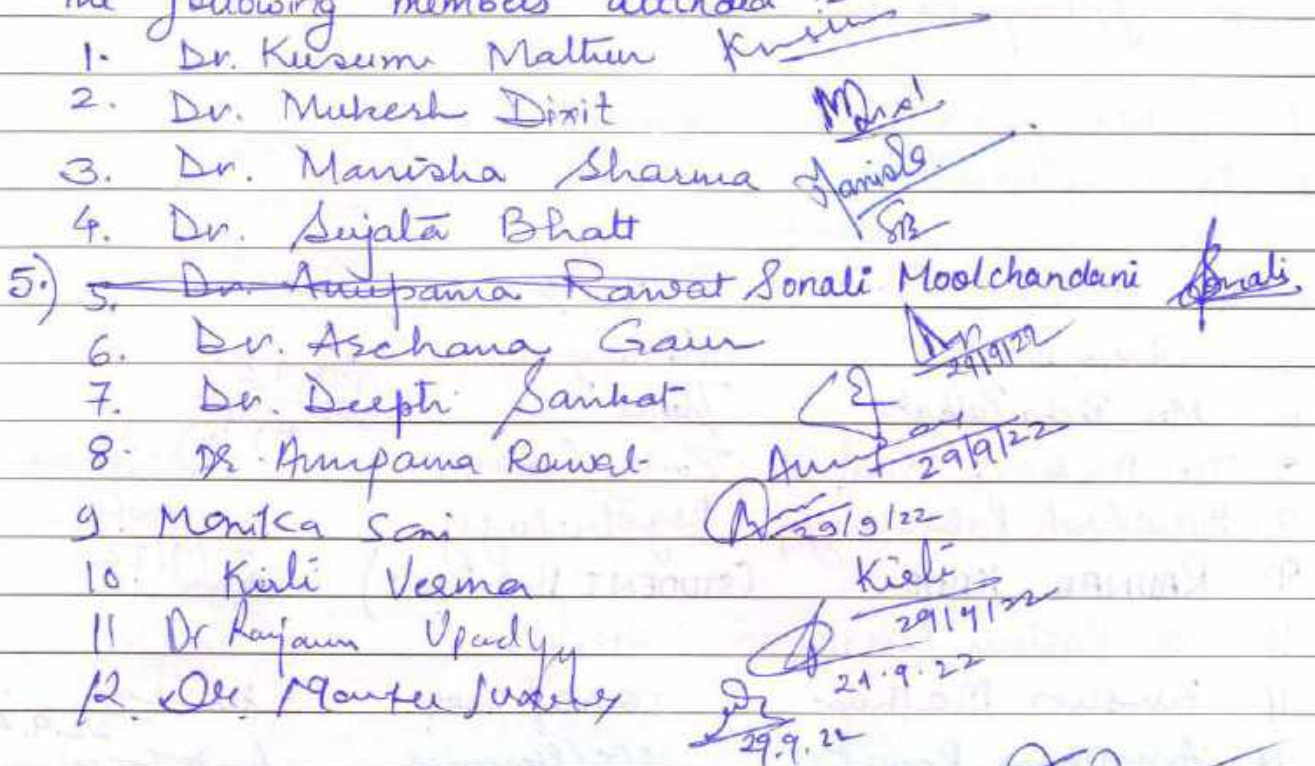 The following members attended :-
1. Dr. Kusum Mathur Kusum
2. Dr. Mukesh Dixit
3. Dr. Manisha Sharma Manisha
4. Dr. Sujata Bhatt SB
5.) 5. Dr. Anupama Rawat Sonali Moolchandani Sonali
6. Dr. Archana Gaur 29/9/22
7. Dr. Deepti Sankat
8. Dr Anupama Rawat Anu 29/9/22
9 Monika Soni 29/9/22
10. Kirti Verma Kirti 29/9/22
11 Dr Ranjana Upadhy 29.9.22
12. Dr. 29.9.22